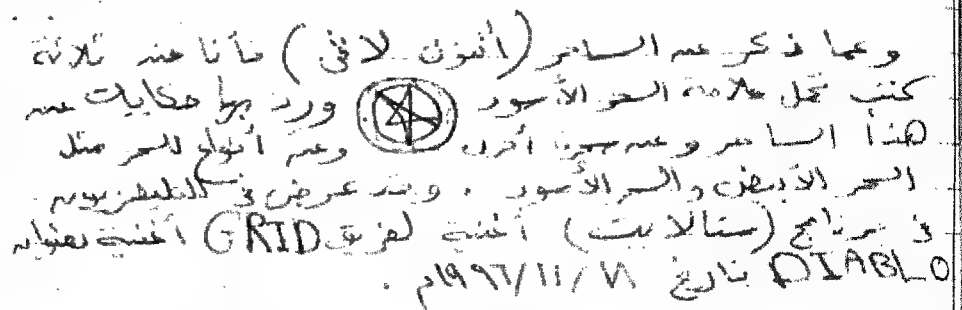 وعما ذكر عن الساحر (أنتون لافي) فأنا عند ثلاثة
كتب تحمل علامة السحر الأسود ورد بها حكايات عن
هذا الساحر وعن سحرة أخرى وعن أنواع السحر مثل
السحر الأبيض والسحر الأسود . وقد عرض في التليفزيون
في برنامج (ستالايت) أغنية لفريق GRID أغنية بعنوان
DIABLO بتاريخ ١٩٩٦/١١/ م .